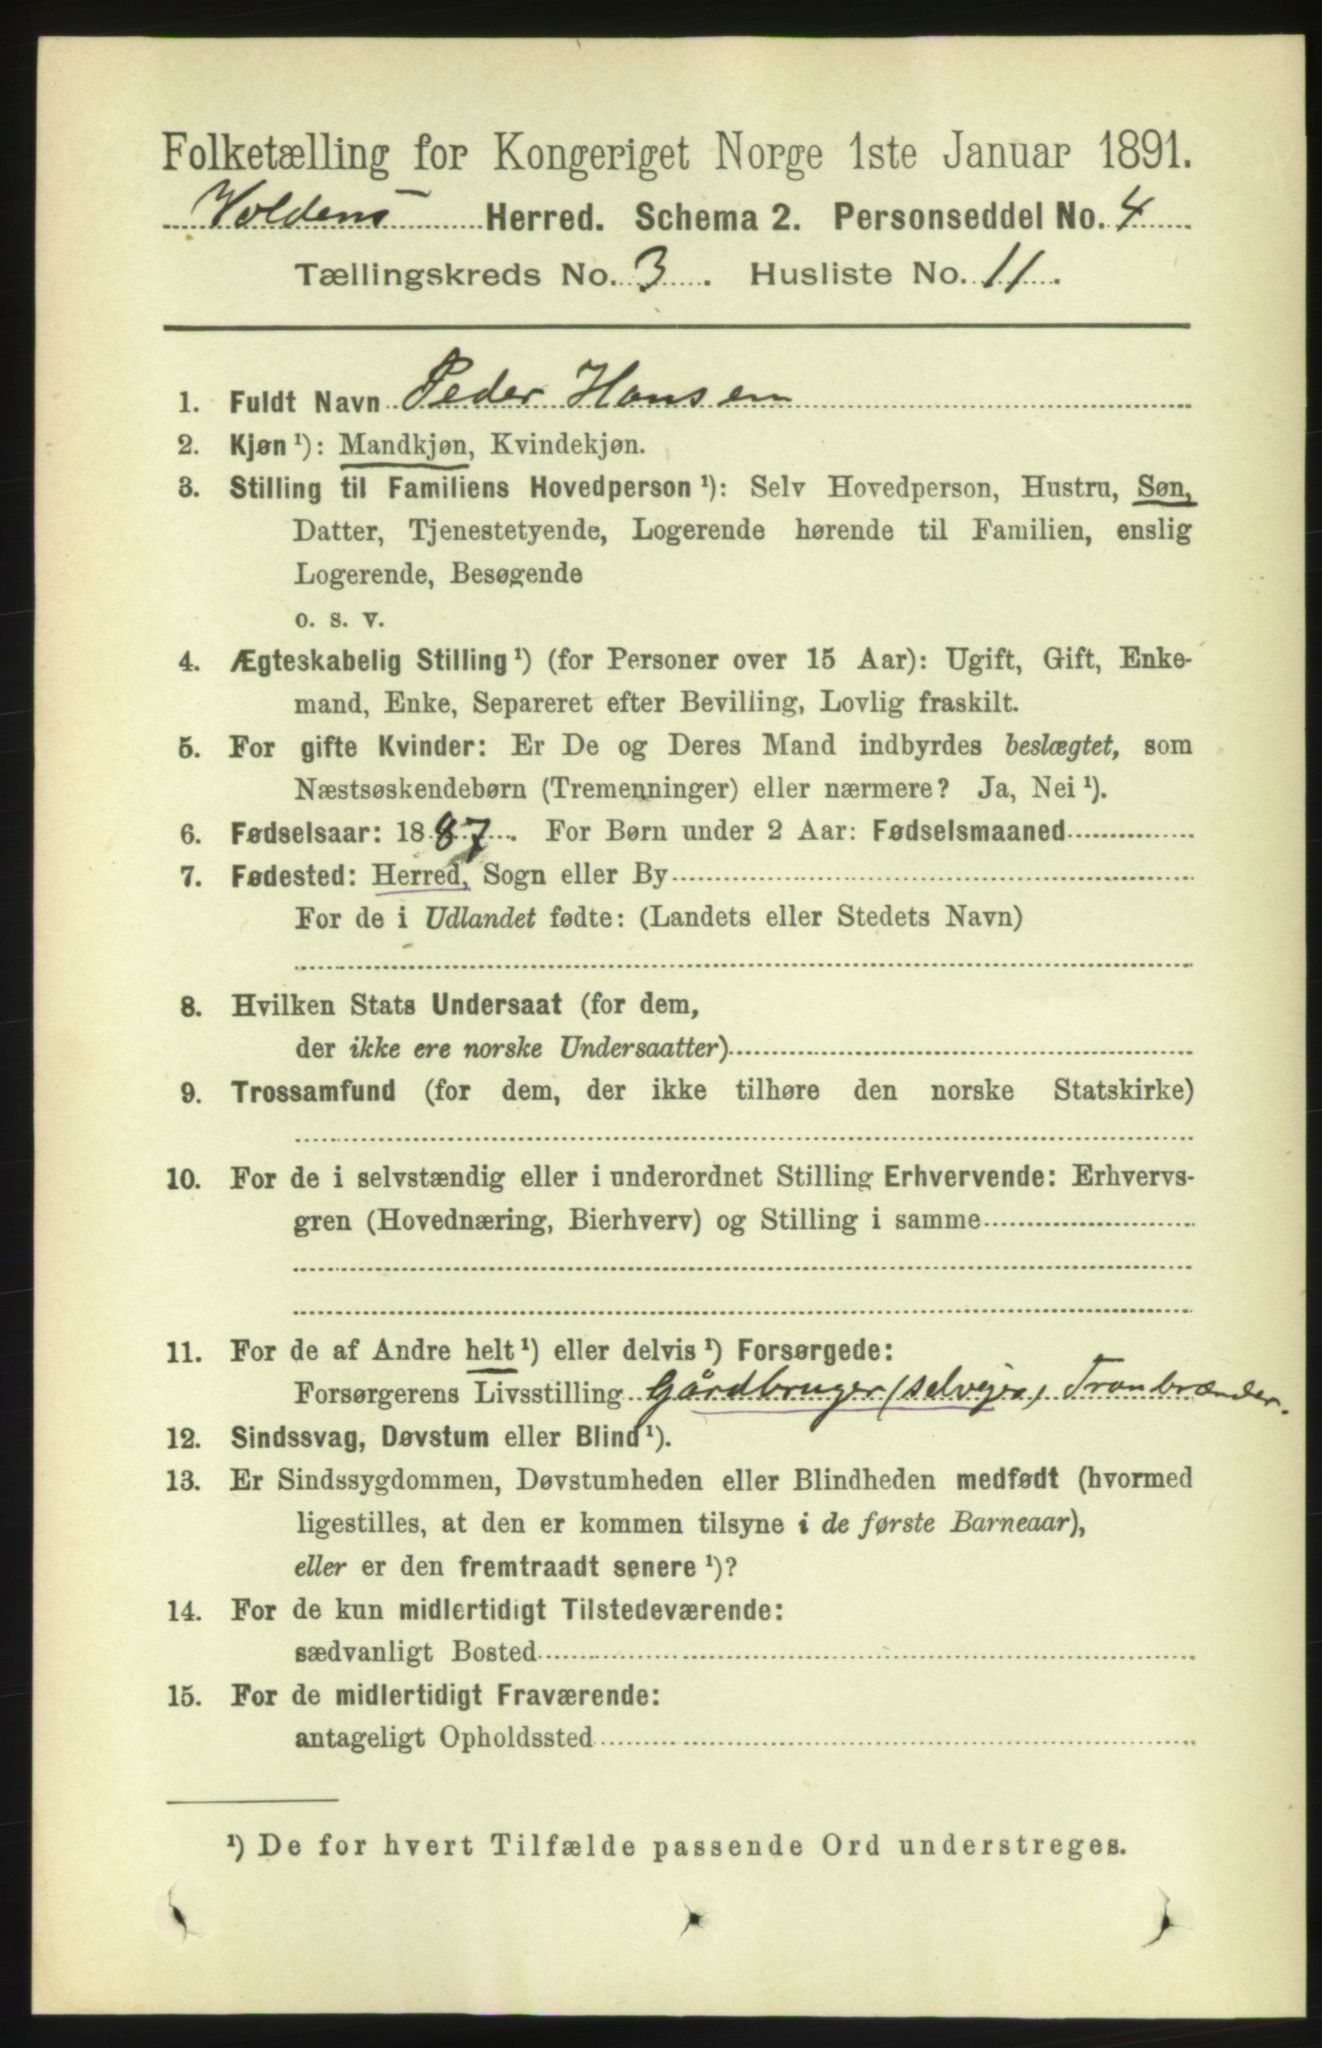 Folketælling for Kongeriget Norge 1ste Januar 1891.
Voldens Herred. Schema 2. Personseddel No. 4
Tællingskreds No. 3. Husliste No. 11.
1. Fuldt Navn Peder Hansen
2. Kjøn ¹): Mandkjøn, Kvindekjøn.
3. Stilling til Familiens Hovedperson ¹): Selv Hovedperson, Hustru, Søn,
Datter, Tjenestetyende, Logerende hørende til Familien, enslig
Logerende, Besøgende
o. s. v.
4. Ægteskabelig Stilling ¹) (for Personer over 15 Aar): Ugift, Gift, Enke-
mand, Enke, Separeret efter Bevilling, Lovlig fraskilt.
5. For gifte Kvinder: Er De og Deres Mand indbyrdes beslægtet, som
Næstsøskendebørn (Tremenninger) eller nærmere? Ja, Nei ¹).
6. Fødselsaar: 1887. For Børn under 2 Aar: Fødselsmaaned
7. Fødested: Herred, Sogn eller By
For de i Udlandet fødte: (Landets eller Stedets Navn)
8. Hvilken Stats Undersaat (for dem,
der ikke ere norske Undersaatter)
9. Trossamfund (for dem, der ikke tilhøre den norske Statskirke)
10. For de i selvstændig eller i underordnet Stilling Erhvervende: Erhvervs-
gren (Hovednæring, Bierhverv) og Stilling i samme
11. For de af Andre helt ¹) eller delvis ¹) Forsørgede:
Forsørgerens Livsstilling Gårdbruger (selvejer) Tranbrænder.
12. Sindssvag, Døvstum eller Blind ¹).
13. Er Sindssygdommen, Døvstumheden eller Blindheden medfødt (hvormed
ligestilles, at den er kommen tilsyne i de første Barneaar),
eller er den fremtraadt senere ¹)?
14. For de kun midlertidigt Tilstedeværende:
sædvanligt Bosted
15. For de midlertidigt Fraværende:
antageligt Opholdssted
¹) De for hvert Tilfælde passende Ord understreges.